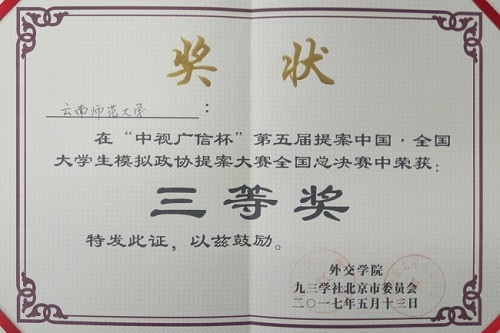 奖状
云南师范大学：
在“中视广信杯”第五届提案中国·全国
大学生模拟政协提案大赛全国总决赛中荣获：
三等奖
特发此证，以兹鼓励。
外交学院
九三学社北京市委员会
二〇一七年五月十三日